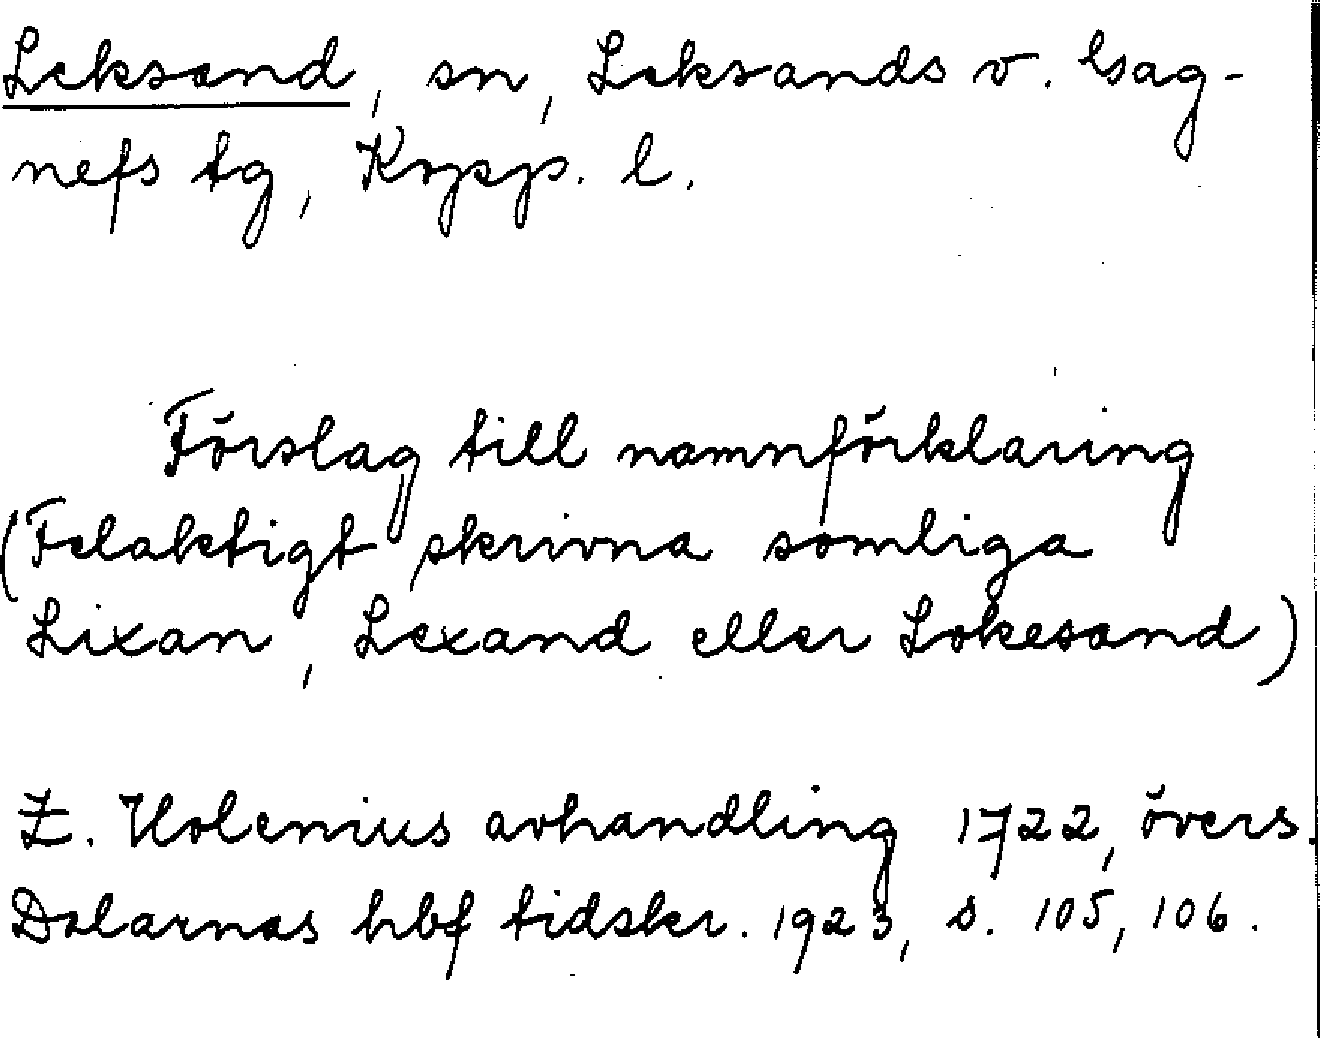 Leksand, sn, Leksands v. Gag-
nefs tg, Kopp. l.
Förslag till namnförklaring
(Felaktigt skrivna somliga
Lixan, Lexand eller Lokesand)
Z. Holenius avhandling 1722, övers.
Dalarnas hbf tidskr. 1923, s. 105, 106.